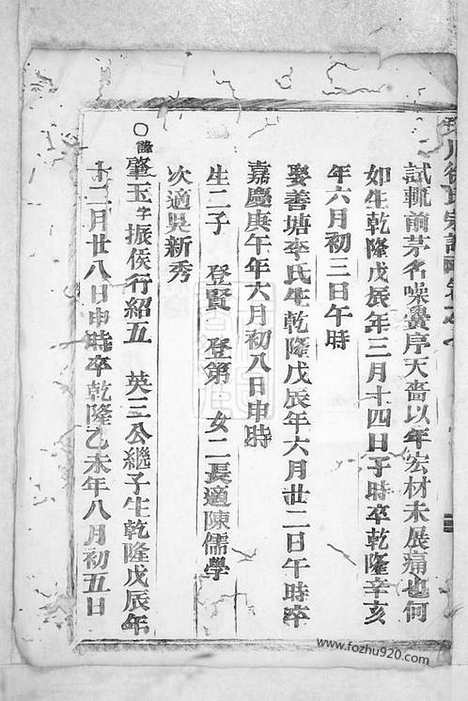 試輒前茅名噪黌序天嗇以年宏材未展痛也何
如生乾隆戊辰年三月十四日子時卒乾隆辛亥
年六月初三日午時
娶善塘李氏生乾隆戊辰年六月廿二日午時卒
嘉慶庚午年六月初八日申時
生二子 登賢 登第 女二長適陳儒學
次適吳新秀
○ 肇玉字振侯行紹五 英三公繼子生乾隆戊辰年
十二月廿八日申時卒乾隆乙未年八月初五日
www.fozhu920.com